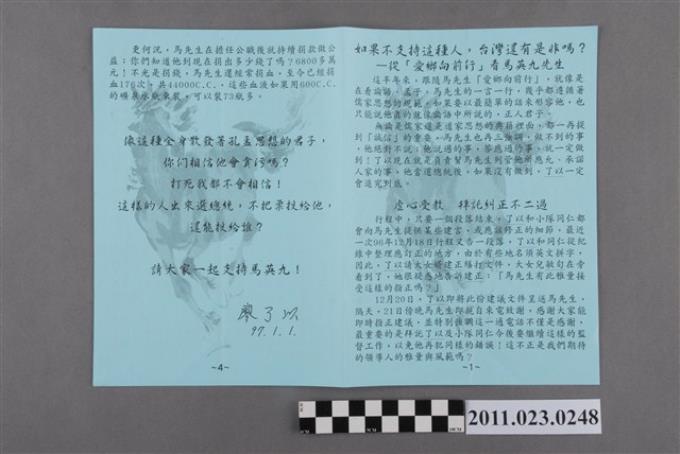 更何況，馬先生在擔任公職後就持續捐款做公
益：你們知道他到現在捐出多少錢了嗎？6800多萬
元！不光是捐錢，馬先生還經常捐血，至今已經捐
血176次，共44000C.C.，這些血液如果用600C.C.
的礦泉水瓶來裝，可以裝73瓶多。
像這種全身散發著孔孟思想的君子，
你們相信他會貪污嗎？
打死我都不會相信！
這樣的人出來選總統，不把票投給他，
還能投給誰？
請大家一起支持馬英九！
廖了以
97.1.1.
~4~
如果不支持這種人，台灣還有是非嗎？
—從「愛鄉向前行」看馬英九先生
這半年來，跟隨馬先生「愛鄉向前行」，就像是
在看論語、孟子，馬先生的一言一行，幾乎都遵循著
儒家思想的規範，如果要以最簡單的話來形容他，也
只能說他真的就像論語中所說的，正人君子。
無論是儒家還是道家思想的典籍裡面，都一再提
到「誠信」的重要，馬先生也再三強調，做不到的事
，他絕對不說；他說過的事、答應過的事，就一定做
到！了以現在就是負責幫馬先生列管他所應允、承諾
人家的事，他當選總統後，如果沒有做到，了以一定
會追究到底。
虛心受教　拜託糾正不二過
行程中，只要一個段落結束，了以和小隊同仁都
會向馬先生提供某些建言，或應該修正的細節，最近
一次96年12月18日行程又告一段落，了以和同仁從紀
錄中整理應訂正的地方，由於有些地名須英文拼字，
因此，了以請大女婿建正繕打文件，大女兒敏旬在旁
看到了，她很疑惑地告訴建正：「馬先生有此雅量接
受這樣的指正嗎？」
12月20日，了以即將此份建議文件呈送馬先生，
隔天，21日傍晚馬先生即親自來電致謝，感謝大家能
即時指正建議，並特別強調這一通電話不僅是感謝，
最重要的是拜託了以及小隊同仁今後要繼續這樣的監
督工作，以免他再犯同樣的錯誤！這不正是我們期待
的領導人的雅量與風範嗎？
~1~
2011.023.0248